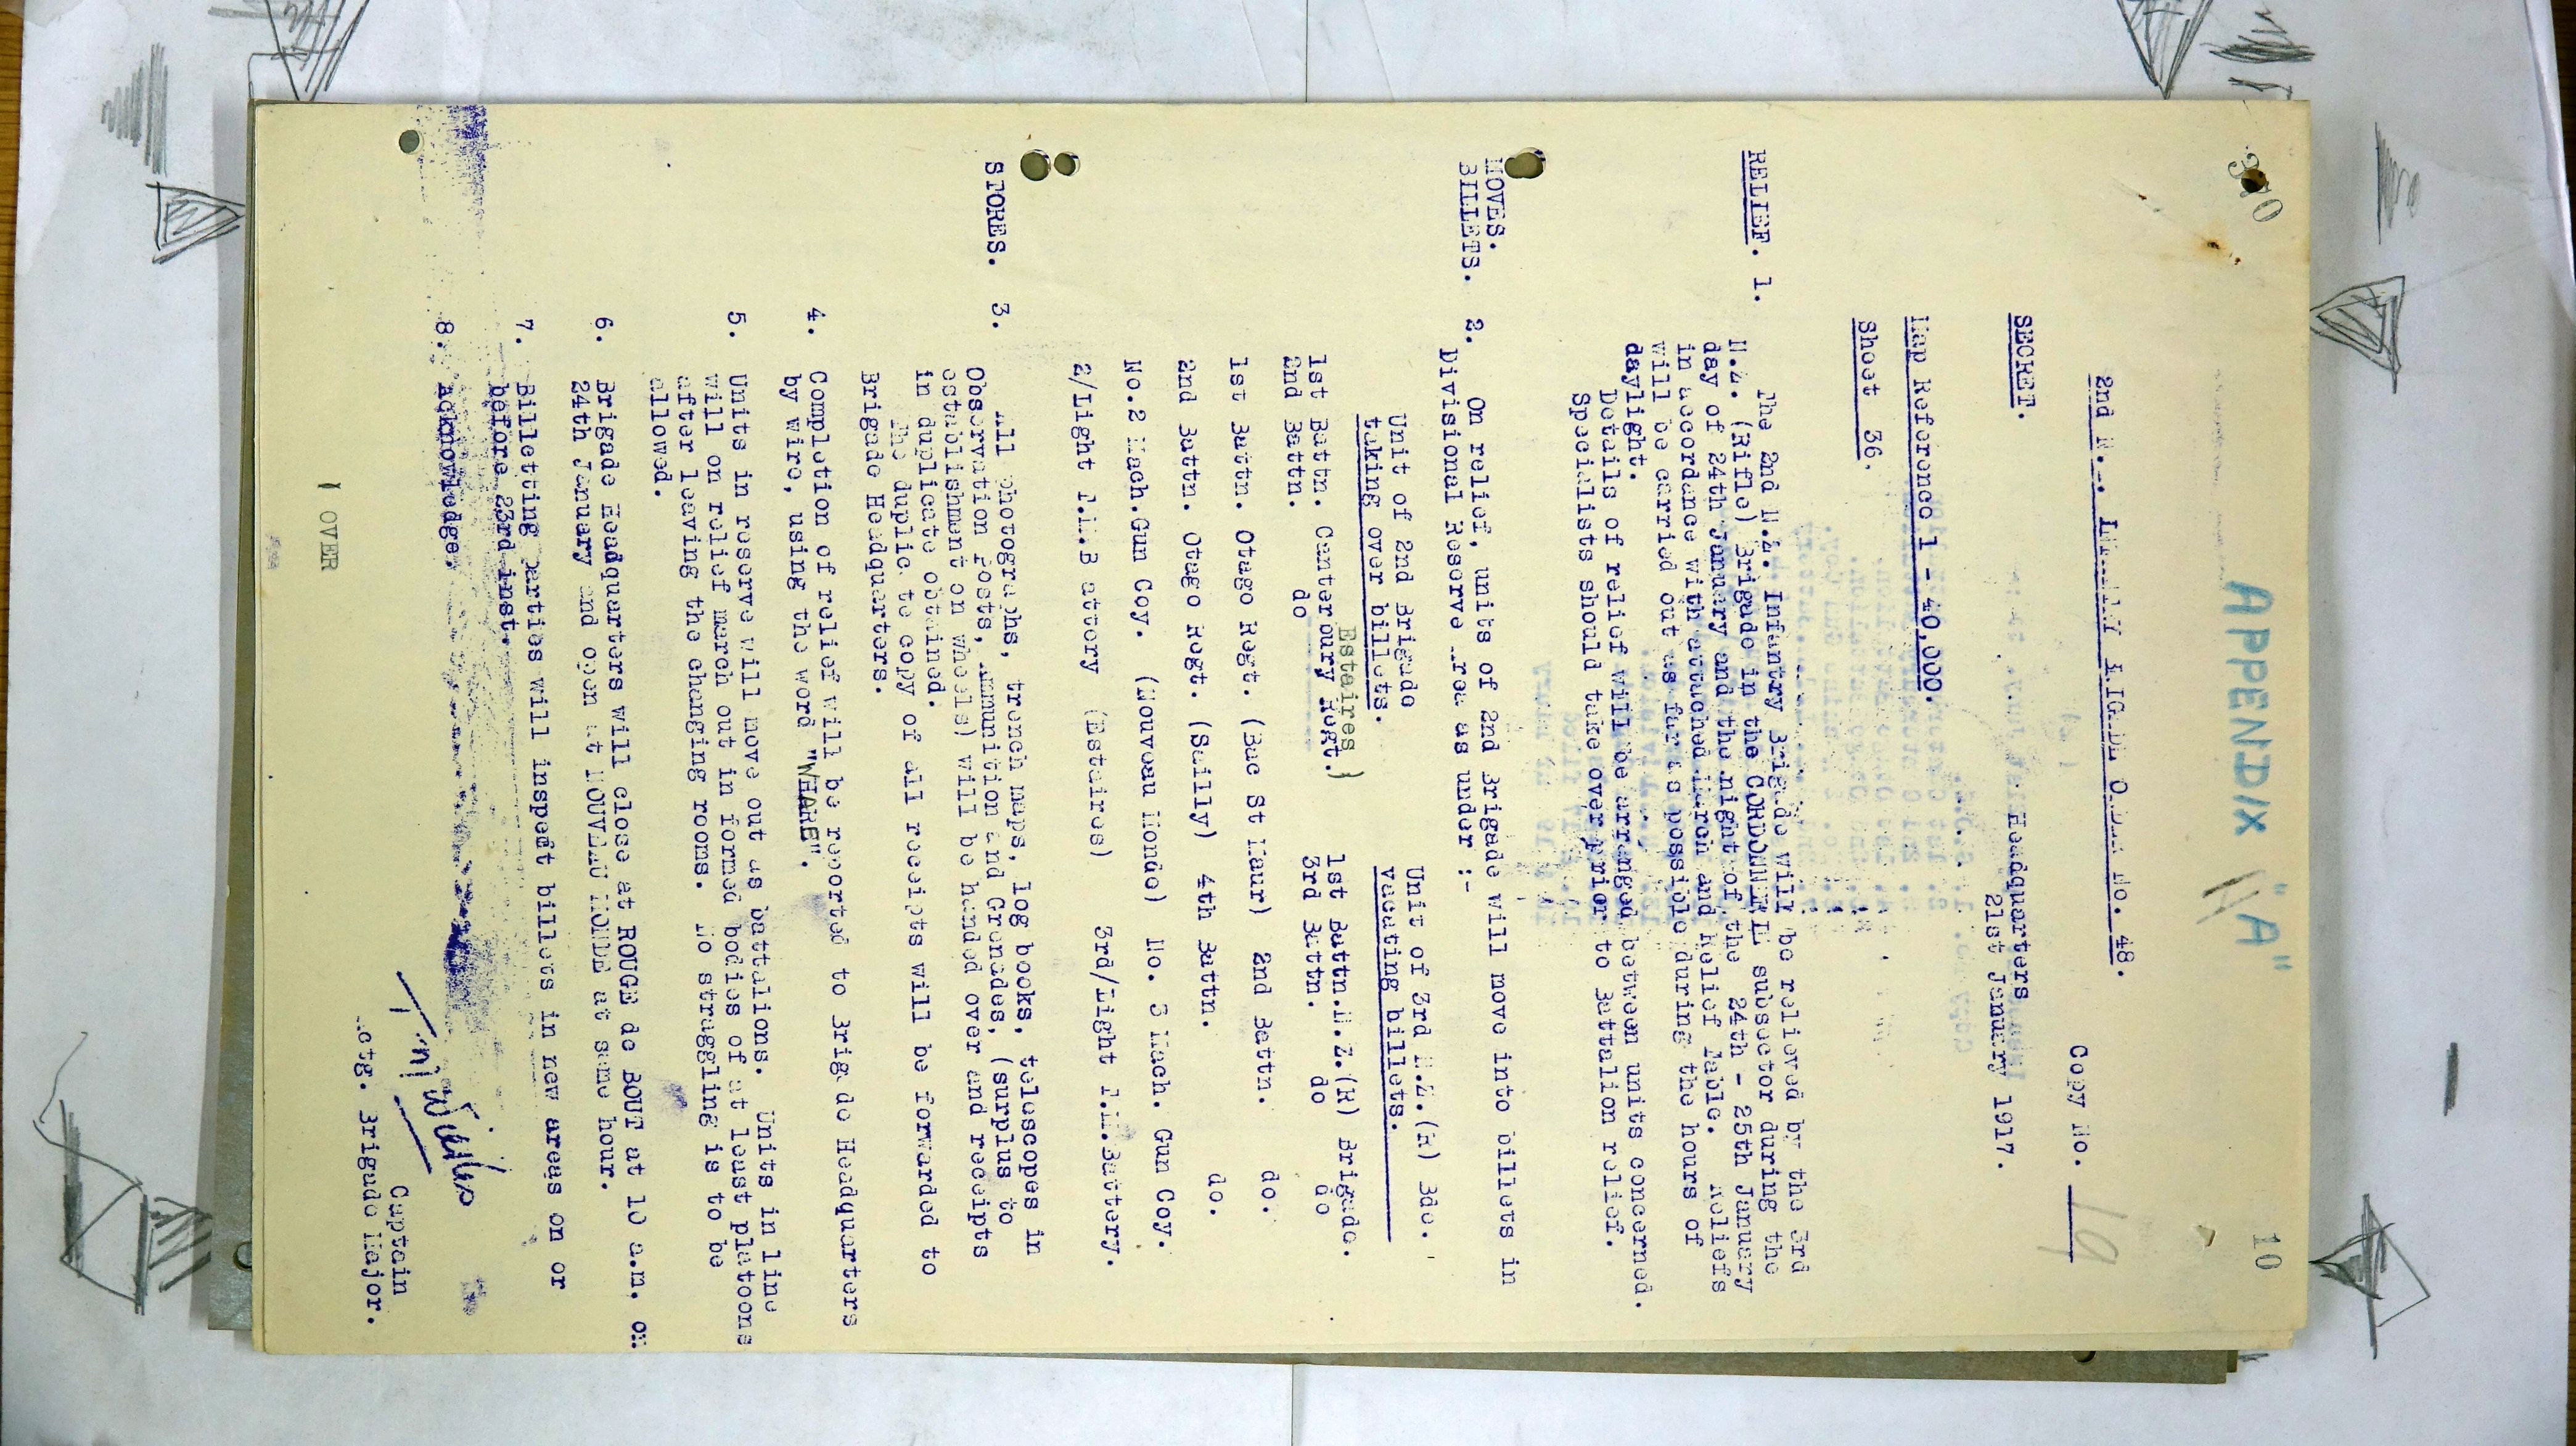 10
APPENDIX "A"
2nd N.Z. INFANTRY BRIGADE ORDER No. 48.
Copy No. 19
SECRET.
Headquarters
21st January 1917.
Map Reference 1 - 40,000.
Sheet 36.
RELIEF. 1. The 2nd N.Z. Infantry Brigade will be relieved by the 3rd
N.Z. (Rifle) Brigade in the CORDONNERIE subsector during the
day of 24th January and the night of the 24th - 25th January
in accordance with attached March and Relief Table. Reliefs
will be carried out as far as possible during the hours of
daylight.
Details of relief will be arranged between units concerned.
Specialists should take over prior to Battalion relief.
MOVES.
BILLETS. 2. On relief, units of 2nd Brigade will move into billets in
Divisional Reserve Area as under :-
Unit of 2nd Brigade Unit of 3rd N.Z.(R) Bde.
taking over billets. vacating billets.
Estaires
1st Battn. Canterbury Regt.) 1st Battn.N.Z.(R) Brigade.
2nd Battn. do 3rd Battn. do do
1st Battn. Otago Regt. (Bac St Maur) 2nd Battn. do.
2nd Battn. Otago Regt. (Sailly) 4th Battn. do.
No.2 Mach.Gun Coy. (Nouveau Monde) No. 3 Mach. Gun Coy.
2/Light T.M.B attery (Estaires) 3rd/Light T.M.Battery.
STORES. 3. All photographs, trench maps, log books, telescopes in
Observation Posts, Ammunition and Grenades, (surplus to
establishment on wheels) will be handed over and receipts
in duplicate obtained.
The duplic te copy of all receipts will be forwarded to
Brigade Headquarters.
4. Completion of relief will be reported to Brigade Headquarters
by wire, using the word "WHARE".
5. Units in reserve will move out as battalions. Units in line
will on relief march out in formed bodies of at least platoons
after leaving the changing rooms. No straggling is to be
allowed.
6. Brigade Headquarters will close at ROUGE de BOUT at 10 a.m. on
24th January and open at NOUVEAU MONDE at same hour.
7. Billetting parties will inspect billets in new areas on or
before 23rd inst.
8. Acknowledge.
Captain
Actg. Brigade Major.
OVER